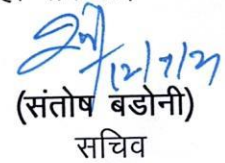 12/7/21
(संतोष बडोनी)
सचिव